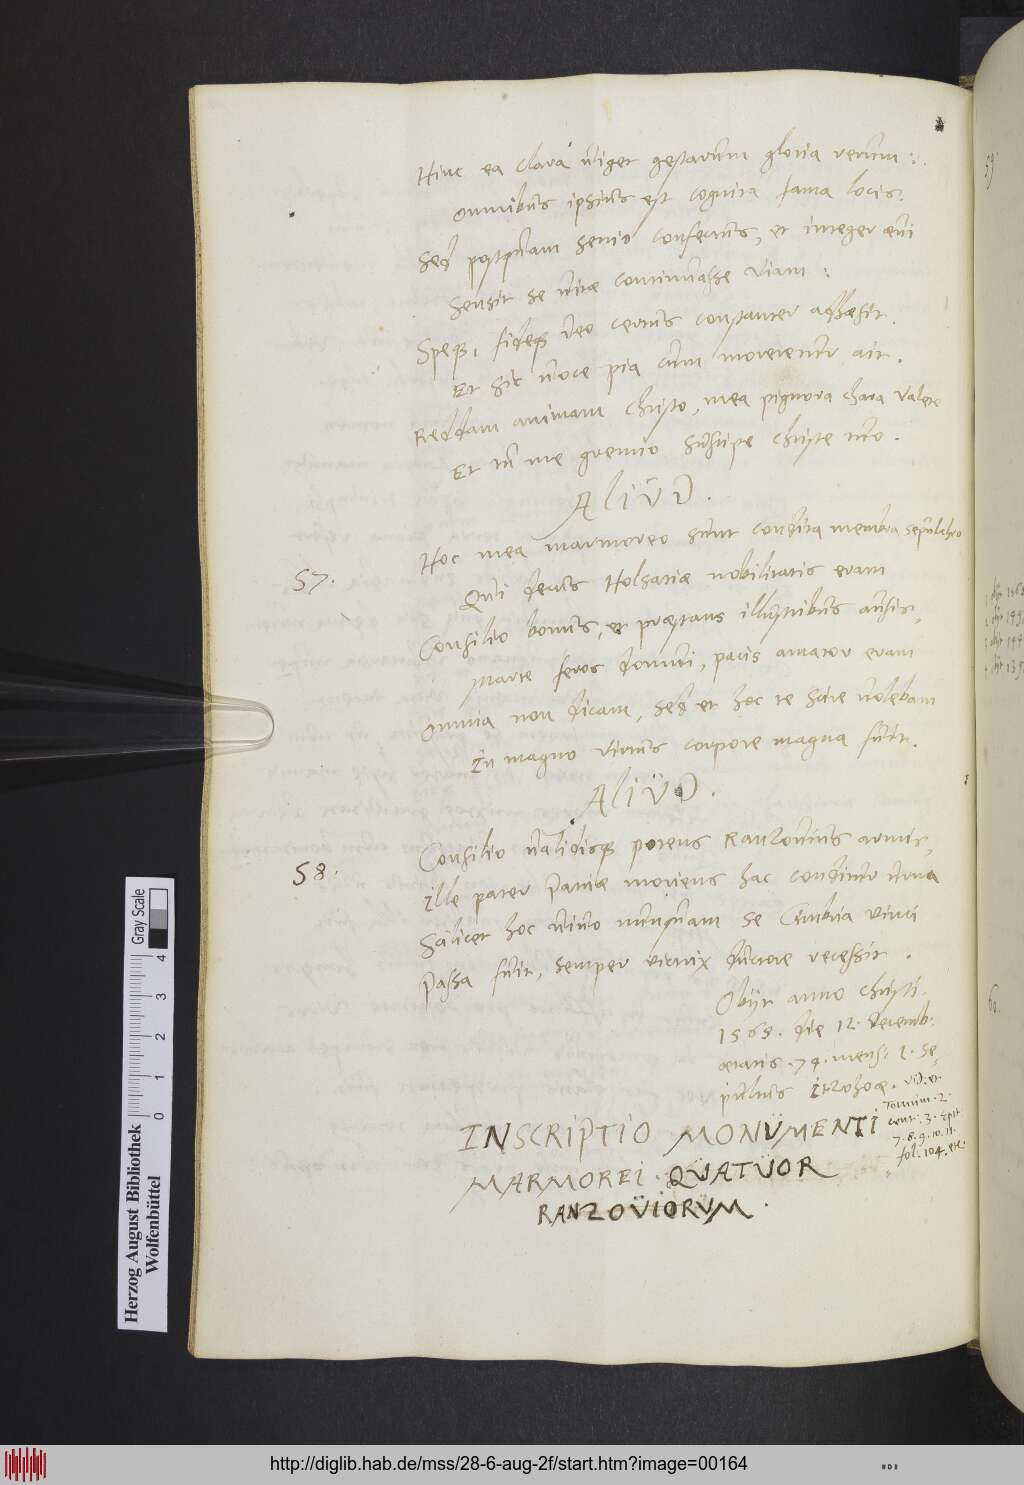 Hinc ea clara viget gestarum gloria rerum:
omnibus ipsius est cognita fama locis.
Sed postquam senio confectus, et integer ævi
Sensit se vitæ continuasse viam:
Speq3, fideq3 deo certus constanter adhæsit.
Et sic voce pia cum moreretur ait.
Reddam animam Christo, mea pignora chara valete
Et tu me gremio suscipe Christe tuo.
ALIUD.
57.
Hoc mea marmoreo sunt condita membra sepulchro
Qui decus Holsatiæ nobilitatis eram
Consilio bonus, et præstans illustribus ausis,
Marte feros domui, pacis amator eram
Omnia non dicam, sed et hoc te scire volebam
In magno virtus corpore magna fuit.
ALIUD.
58.
Consilio validisq3 potens Ranzovius armis,
Ille pater Patriæ moriens hac conditur urna
Scilicet hoc vivo nunquam se Cimbria vinci
Passa fuit, semper victrix ductore recessit.
Obijt anno Christi
1565. die 12. Decemb.
ætatis. 74. mens: 1. Se-
pultus Itzohoæ. vid. et
Tomum. 2.
cent: 3. Epit
7. 8. 9. 10. 11.
fol. 104. etc.
INSCRIPTIO MONUMENTI
MARMOREI. QUATUOR
RANZOVIORUM.
59
60.
Herzog August Bibliothek
Wolfenbüttel
Gray Scale
0 1 2 3 4
http://diglib.hab.de/mss/28-6-aug-2f/start.htm?image=00164